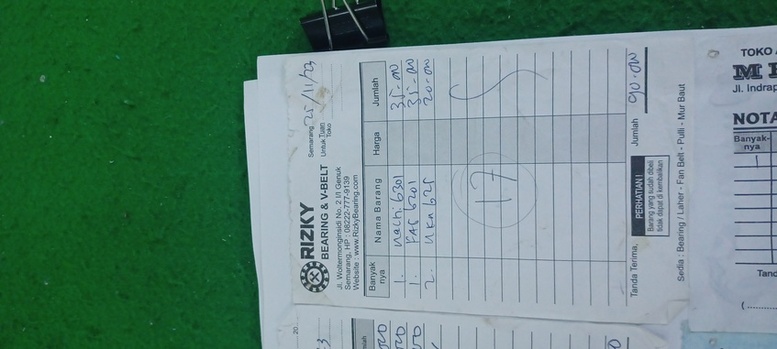 RIZKY
BEARING & V-BELT
Jl. Woltermonginsidi No. 2 I/I Genuk
Semarang, HP : 08222-777-9139
Website : www.RizkyBearing.com
Semarang, 25/11/23
Untuk Tuan
Toko
Banyak nya Nama Barang Harga Jumlah
1. Nachi 6301 35.000
1. FAG 6201 35.000
2. 20.000
17
Tanda Terima,
PERHATIAN !
Barang yang sudah dibeli
tidak dapat di kembalikan
Jumlah 90.000
Sedia : Bearing / Laher - Fan Belt - Pulli - Mur Baut
TOKO
Jl. Indrap
NOTA
Banyak-
nya
Tand
20